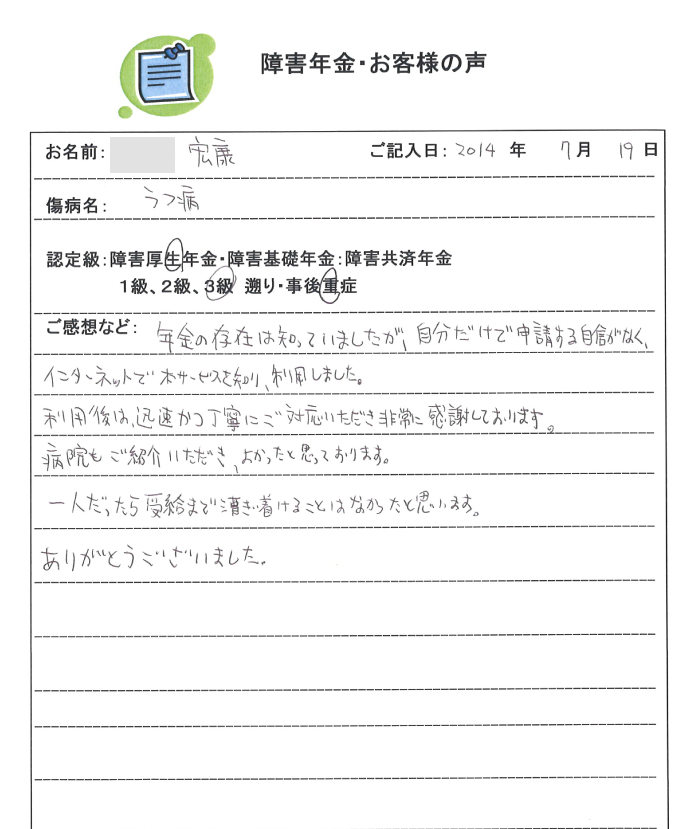 障害年金・お客様の声
お名前: 宏康 ご記入日: 2014 年 7月 19日
傷病名: うつ病
認定級:障害厚生年金・障害基礎年金:障害共済年金
1級、2級、3級 遡り・事後重症
ご感想など: 年金の存在は知っていましたが、自分だけで申請する自信がなく、
インターネットで本サービスを知り、利用しました。
利用後は、迅速かつ丁寧にご対応いただき非常に感謝しております。
病院もご紹介いただき、よかったと思っております。
一人だったら受給まで漕ぎ着けることはなかったと思います。
ありがとうございました。